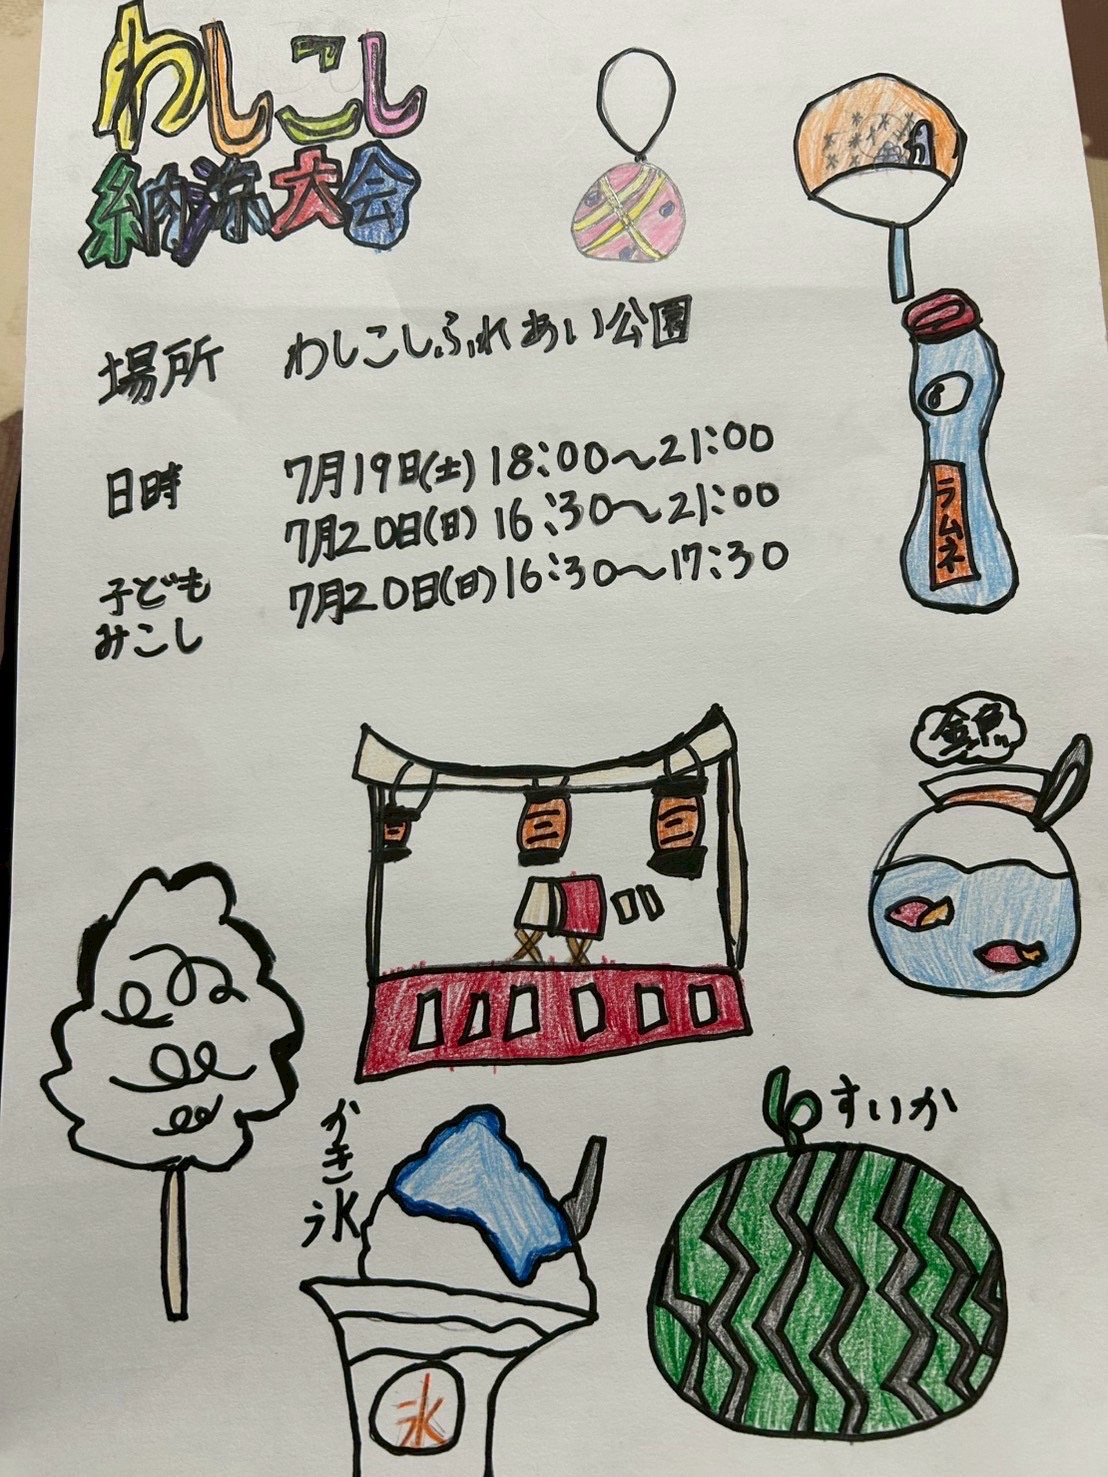 わしこし
納涼大会
場所 わしこしふれあい公園
日時 7月19日(土) 18:00〜21:00
7月20日(日) 16:30〜21:00
子どもみこし 7月20日(日) 16:30〜17:30
ラムネ
金魚
三 三 三
かき氷
すいか
氷